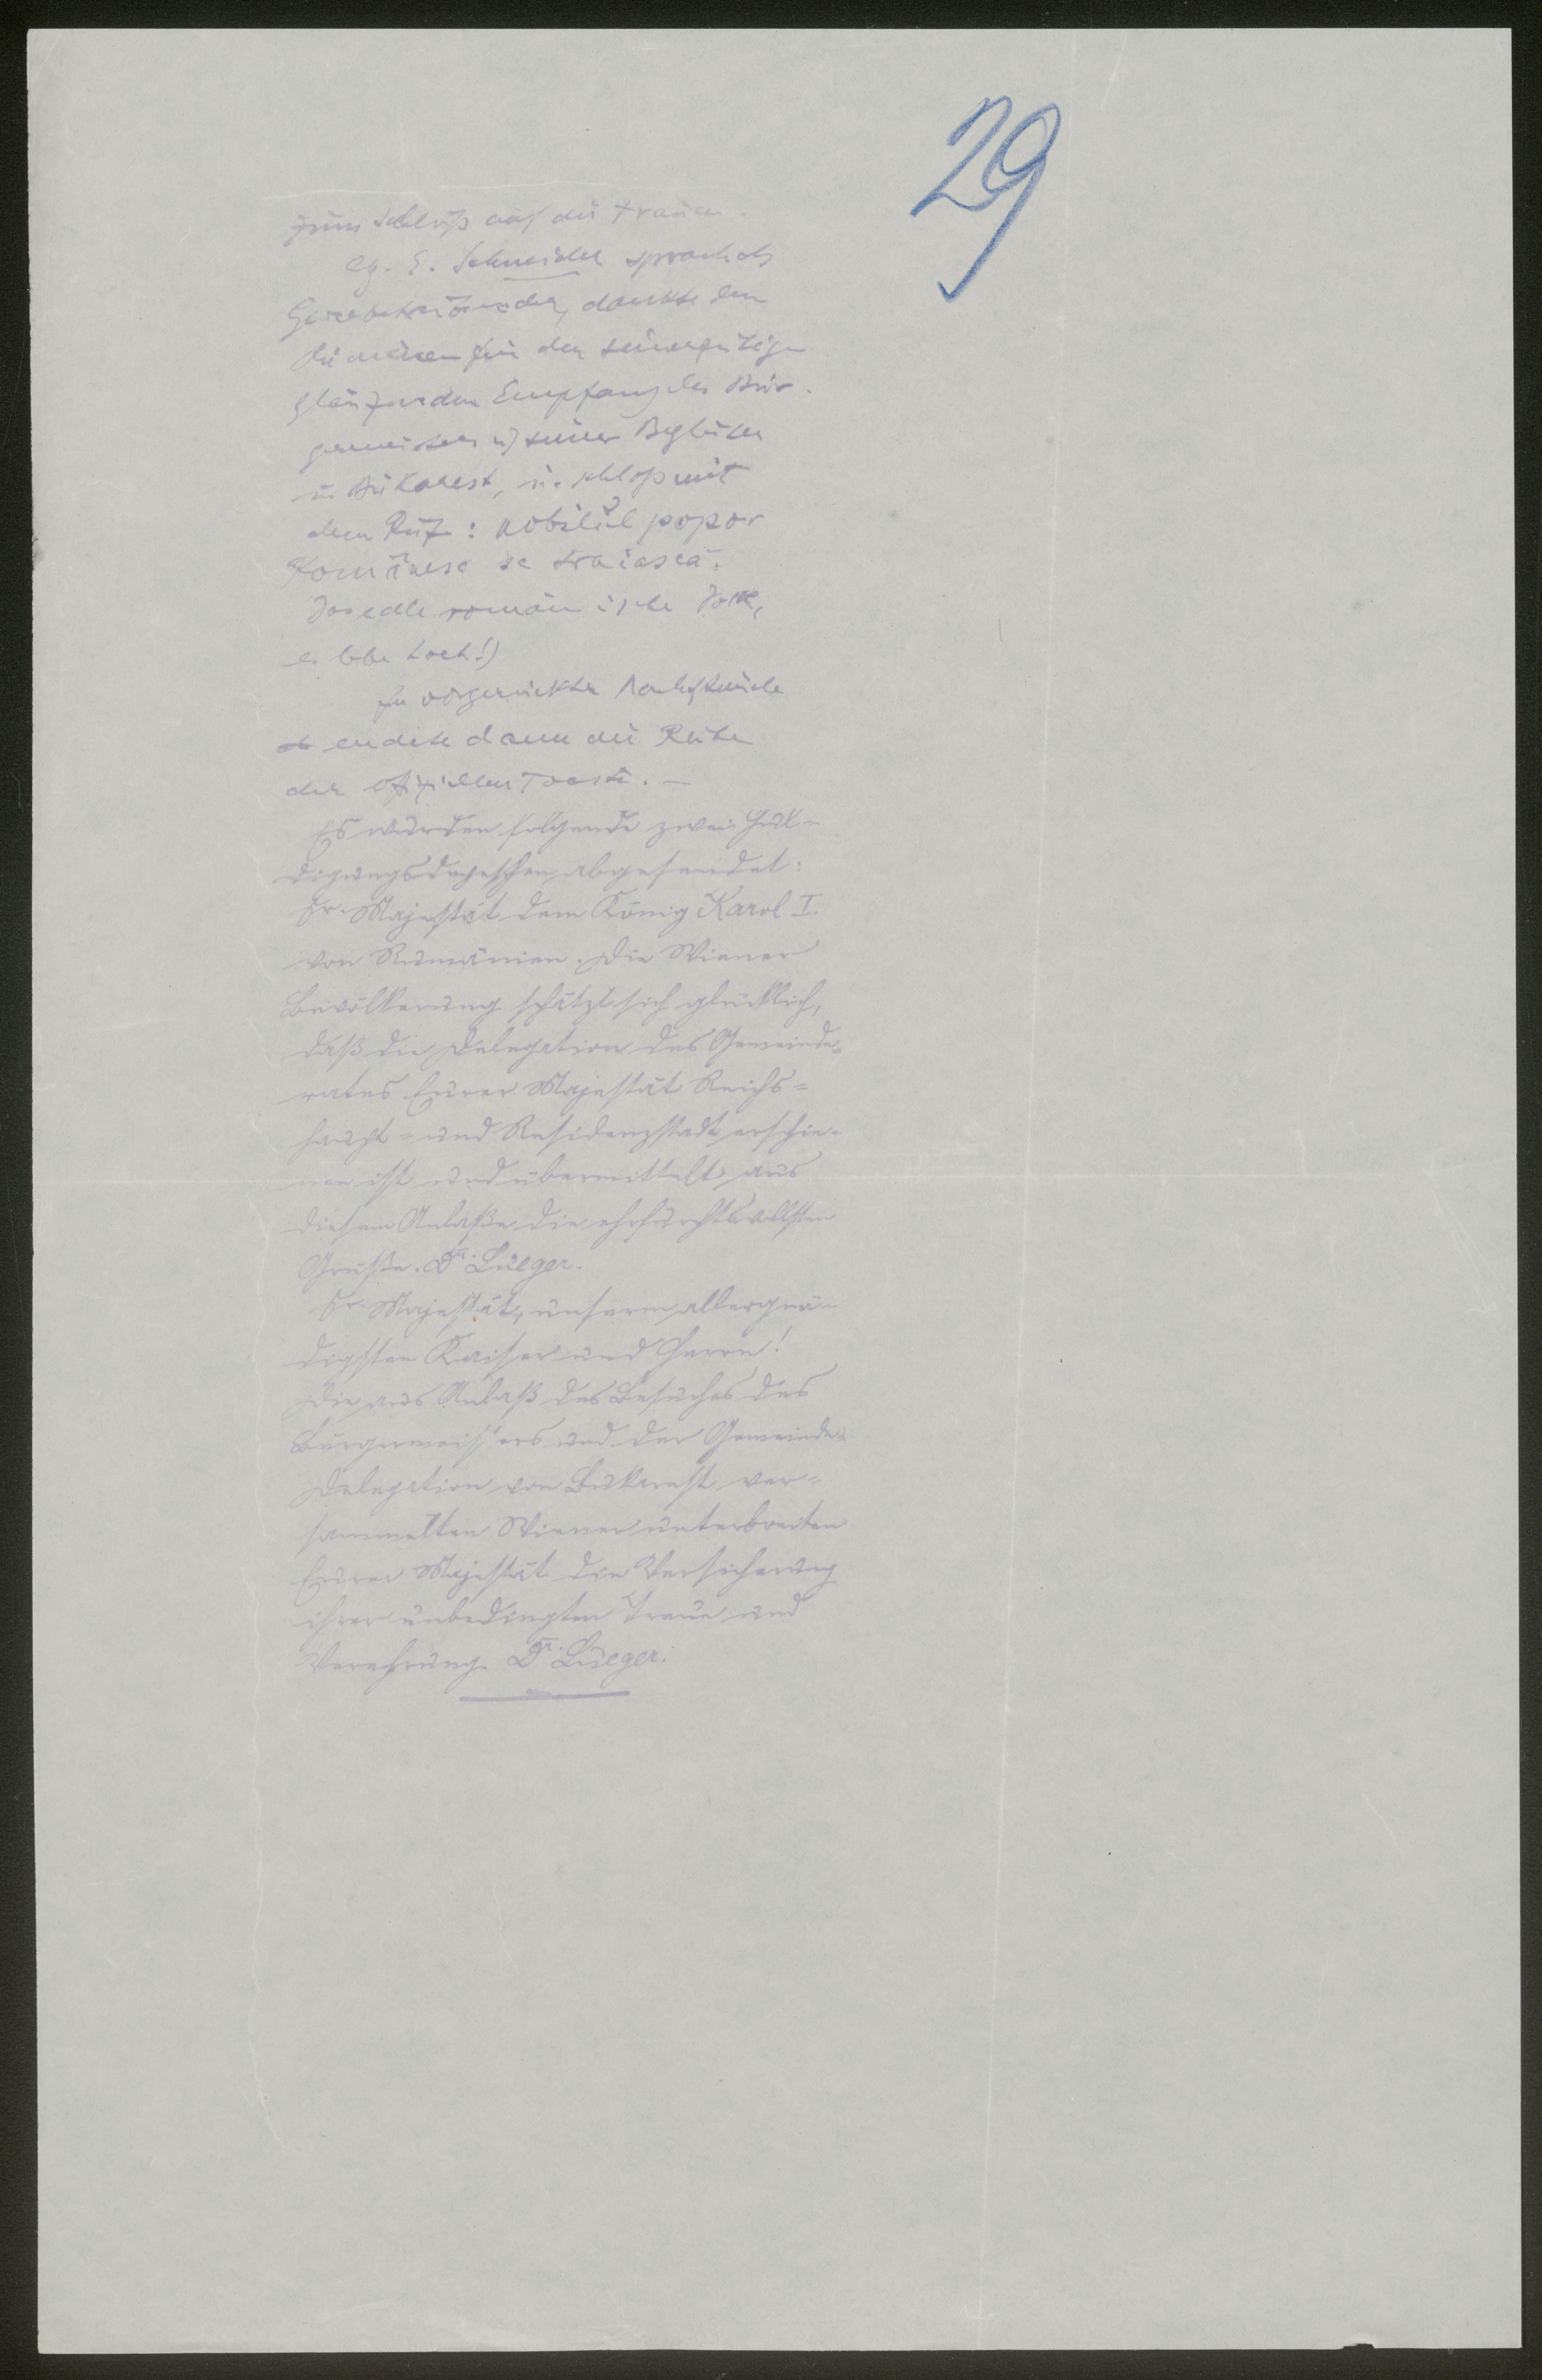 29
zum Schluß auf die Frauen.
Abg. E. Schneider sprach als
Gewerbetreibender, dankte den
Rumänen für den seinerzeitigen
glänzenden Empfang des Bür-
germeisters u) seiner Begleiter
in Bukarest, u. schloß mit
dem Ruf: nobilul popor
Românesc se traiasca.
Das edle romänische Volk,
es lebe hoch!)
In vorgerückter Nachtstunde
endete dann die Reihe
der offiziellen Toaste. —
Es wurden folgende zwei Hul-
digungsdepeschen abgesendet:
Sr. Majestät dem König Karol I.
von Rumänien. Die Wiener
Bevölkerung schätzt sich glücklich,
daß die Delegation des Gemeinde-
rates Eurer Majestät Reichs-
haupt- und Residenzstadt erschie-
nen ist und übermittelt aus
diesem Anlaße die ehrfurchtsvollsten
Grüße. Dr. Lueger.
Sr. Majestät, unserm allergnä-
digsten Kaiser und Herrn!
Die aus Anlaß des Besuches des
Bürgermeisters und der Gemeinde-
Delegation von Bukarest ver-
sammelten Wiener unterbreiten
Eurer Majestät die Versicherung
ihrer unbedingten Treue und
Verehrung. Dr. Lueger.